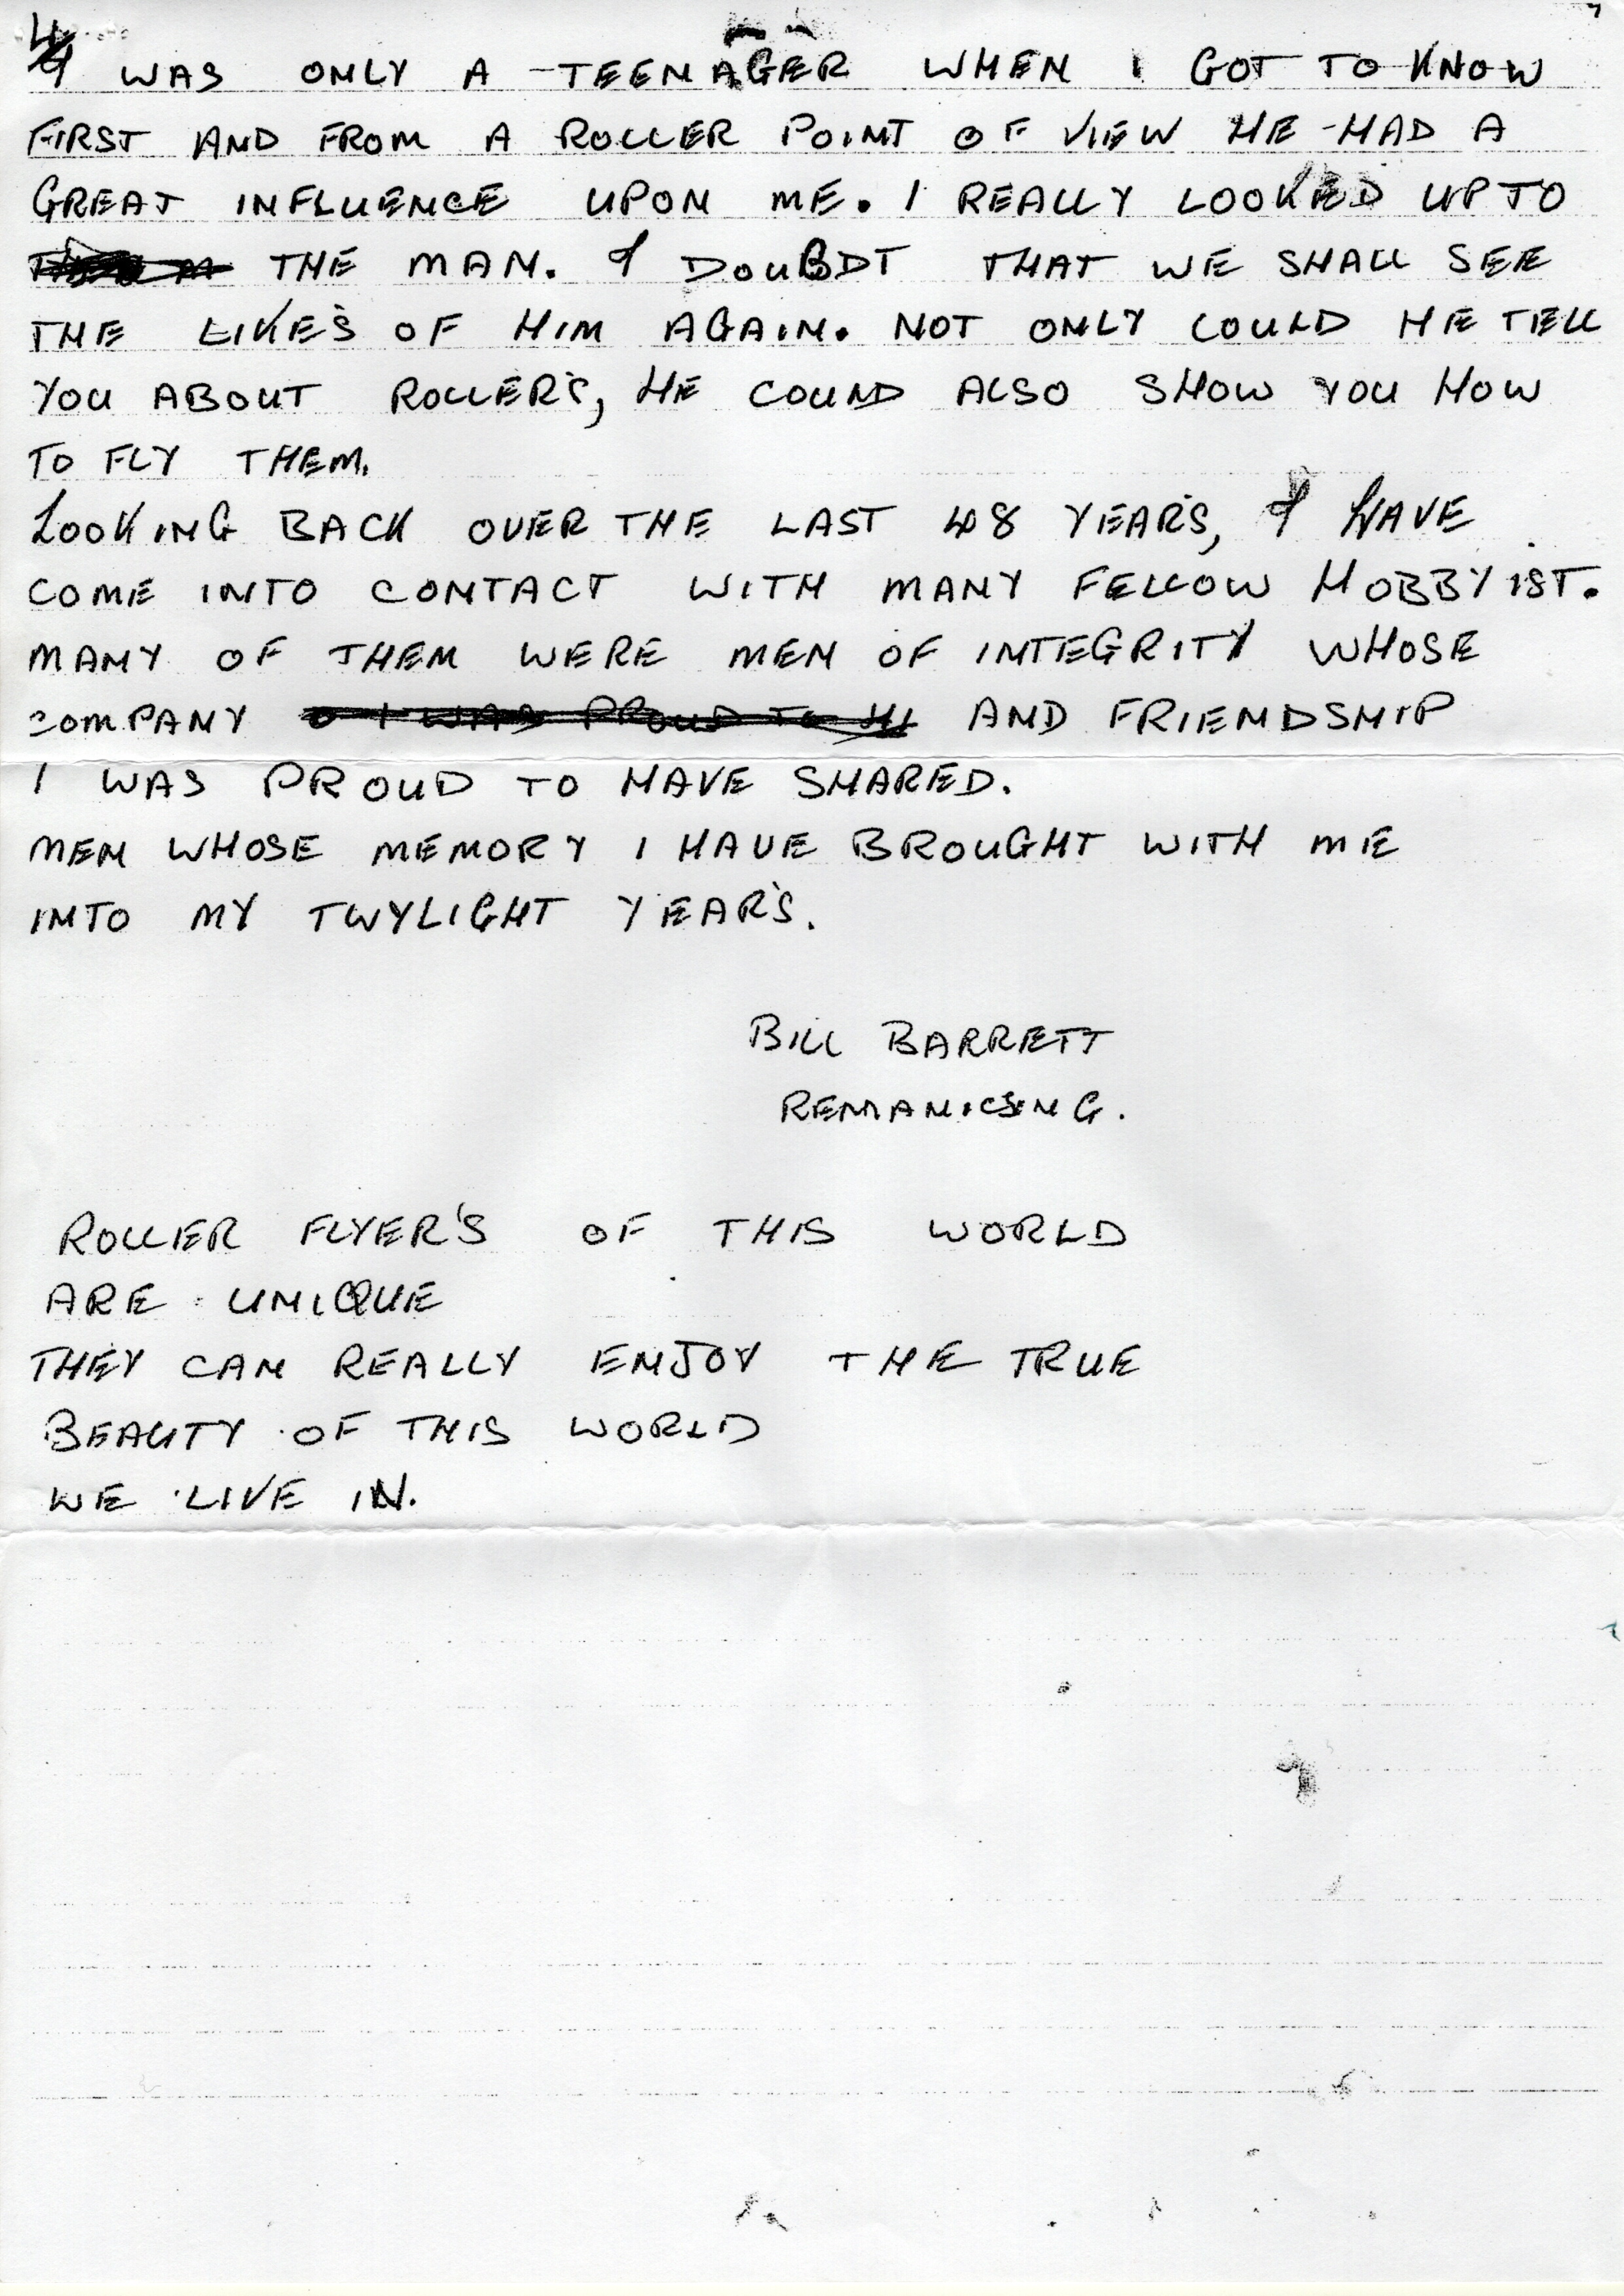 4
I WAS ONLY A TEENAGER WHEN I GOT TO KNOW
FIRST AND FROM A ROLLER POINT OF VIEW HE HAD A
GREAT INFLUENCE UPON ME. I REALLY LOOKED UP TO
THE MAN. I DOUBDT THAT WE SHALL SEE
THE LIKE'S OF HIM AGAIN. NOT ONLY COULD HE TELL
YOU ABOUT ROLLER'S, HE COULD ALSO SHOW YOU HOW
TO FLY THEM.
LOOKING BACK OVER THE LAST 48 YEAR'S, I HAVE
COME INTO CONTACT WITH MANY FELLOW HOBBYIST.
MANY OF THEM WERE MEN OF INTEGRITY WHOSE
COMPANY I WAS PROUD TO AND FRIENDSHIP
I WAS PROUD TO HAVE SHARED.
MEN WHOSE MEMORY I HAVE BROUGHT WITH ME
INTO MY TWYLIGHT YEAR'S.
BILL BARRETT
REMANICSING.
ROLLER FLYER'S OF THIS WORLD
ARE UNIQUE
THEY CAN REALLY ENJOY THE TRUE
BEAUTY OF THIS WORLD
WE LIVE IN.